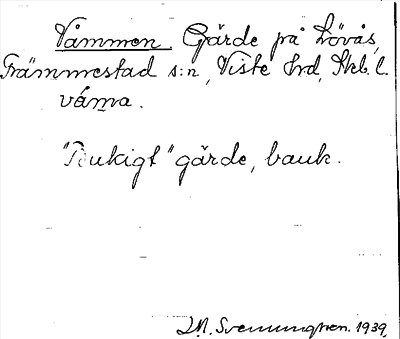 Våmmen. Gärde på Lövås,
Främmestad s:n, Viste hrd, Skb. l.
våm̲a.
"Bukigt" gärde, bauk.
Svenungsson. 1939.